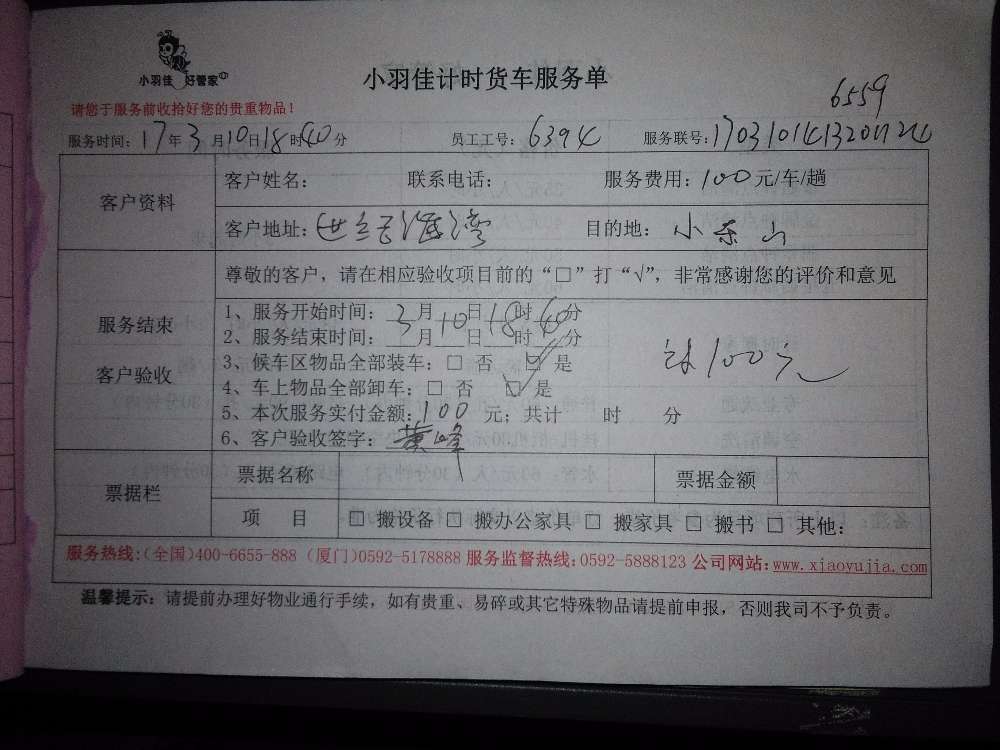 小羽佳 好管家
小羽佳计时货车服务单
6559
请您于服务前收拾好您的贵重物品！
服务时间：17年3月10日18时40分 员工工号：6394 服务联号：
客户资料
客户姓名： 联系电话： 服务费用：100元/车/趟
客户地址：世纪海湾 目的地：小东山
服务结束
客户验收
尊敬的客户，请在相应验收项目前的“□”打“√”，非常感谢您的评价和意见
1、服务开始时间：3月10日18时40分
2、服务结束时间：___月___日___时___分
3、候车区物品全部装车：□ 否 ☑ 是
4、车上物品全部卸车：□ 否 ☑ 是
5、本次服务实付金额：100元；共计 时 分
6、客户验收签字：黄峰
计100元
票据栏
票据名称 票据金额
项 目 □ 搬设备 □ 搬办公家具 □ 搬家具 □ 搬书 □ 其他：
服务热线：(全国)400-6655-888 (厦门)0592-5178888 服务监督热线：0592-5888123 公司网站：www.xiaoyujia.com
温馨提示：请提前办理好物业通行手续，如有贵重、易碎或其它特殊物品请提前申报，否则我司不予负责。